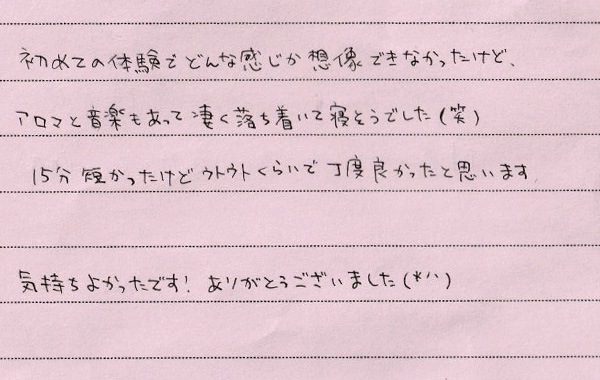 初めての体験でどんな感じか想像できなかったけど、
アロマと音楽もあって凄く落ち着いて寝そうでした(笑)
15分短かったけどウトウトくらいで丁度良かったと思います
気持ちよかったです!ありがとうございました(*^^)